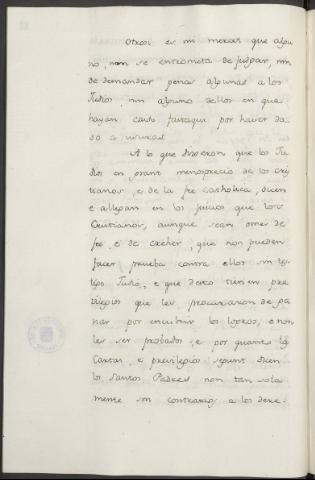 Otrosi es mi merced que algu
no, non se entrometa de juzgar, nin
de demandar penas algunas a los
Judios, nin alguno dellos en que
hayan caido fastaqui por haver da
do a usuras.
A lo que dixeron que los Ju
dios en grant menosprecio de los cris
tianos, e de la fee catholica, dicen
e allegan en los juicios que los
Cristianos, aunque sean omes de
fee, e de creher, que non pueden
facer prueba contra ellos sin tes
tigo Judio, e que desto tienen pre
vilegios que les procuraron de ga
nar por encubrir los logros, e non
les ser probados, e por quanto tales
Cartas, e previlegios segunt dicen
los Santos Padres non tan sola
mente son contrarios a los dere-